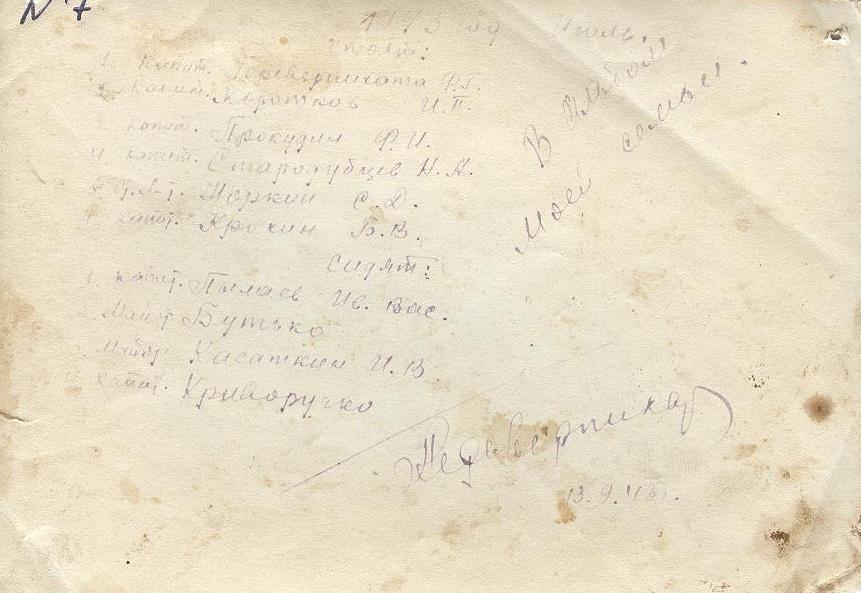 № 7
1943 од Июль.
стоят:
1. капит. Перевершхата Ф.Г.
2. капит. Коротков И.П.
капит. Прокудин Ф.И.
4 капит. Стародубцев Н.А.
5 Норкин С.Д.
капит. Крохин Б.В.
сидят:
1. капит. Пылаев Ив. Вас.
Майор Бутько
Майор Касаткин И.В
капит. Криворучко
В альбом
моей семьи.
13.9.43г.